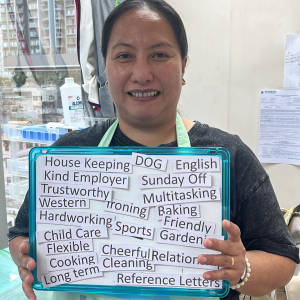 House Keeping DOG English
Kind Employer Sunday Off
Trustworthy Multitasking
Western Ironing Baking
Hardworking Sports Friendly
Child Care Garden
Flexible Cheerful Relation
Cooking Cleaning
Long term Reference Letters